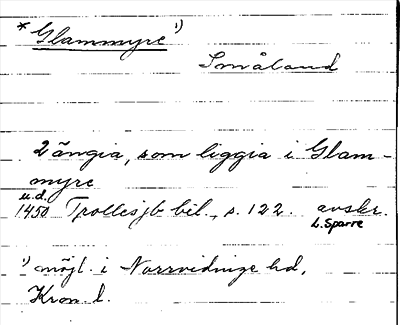 * Glammyre 1)
Småland
2 ängia, som liggia i Glam-
myre
u.d.
1450 Trolles jb bil., s. 122. avskr.
L. Sparre
1) möjl. i Norrvidinge hd,
Kron. l.